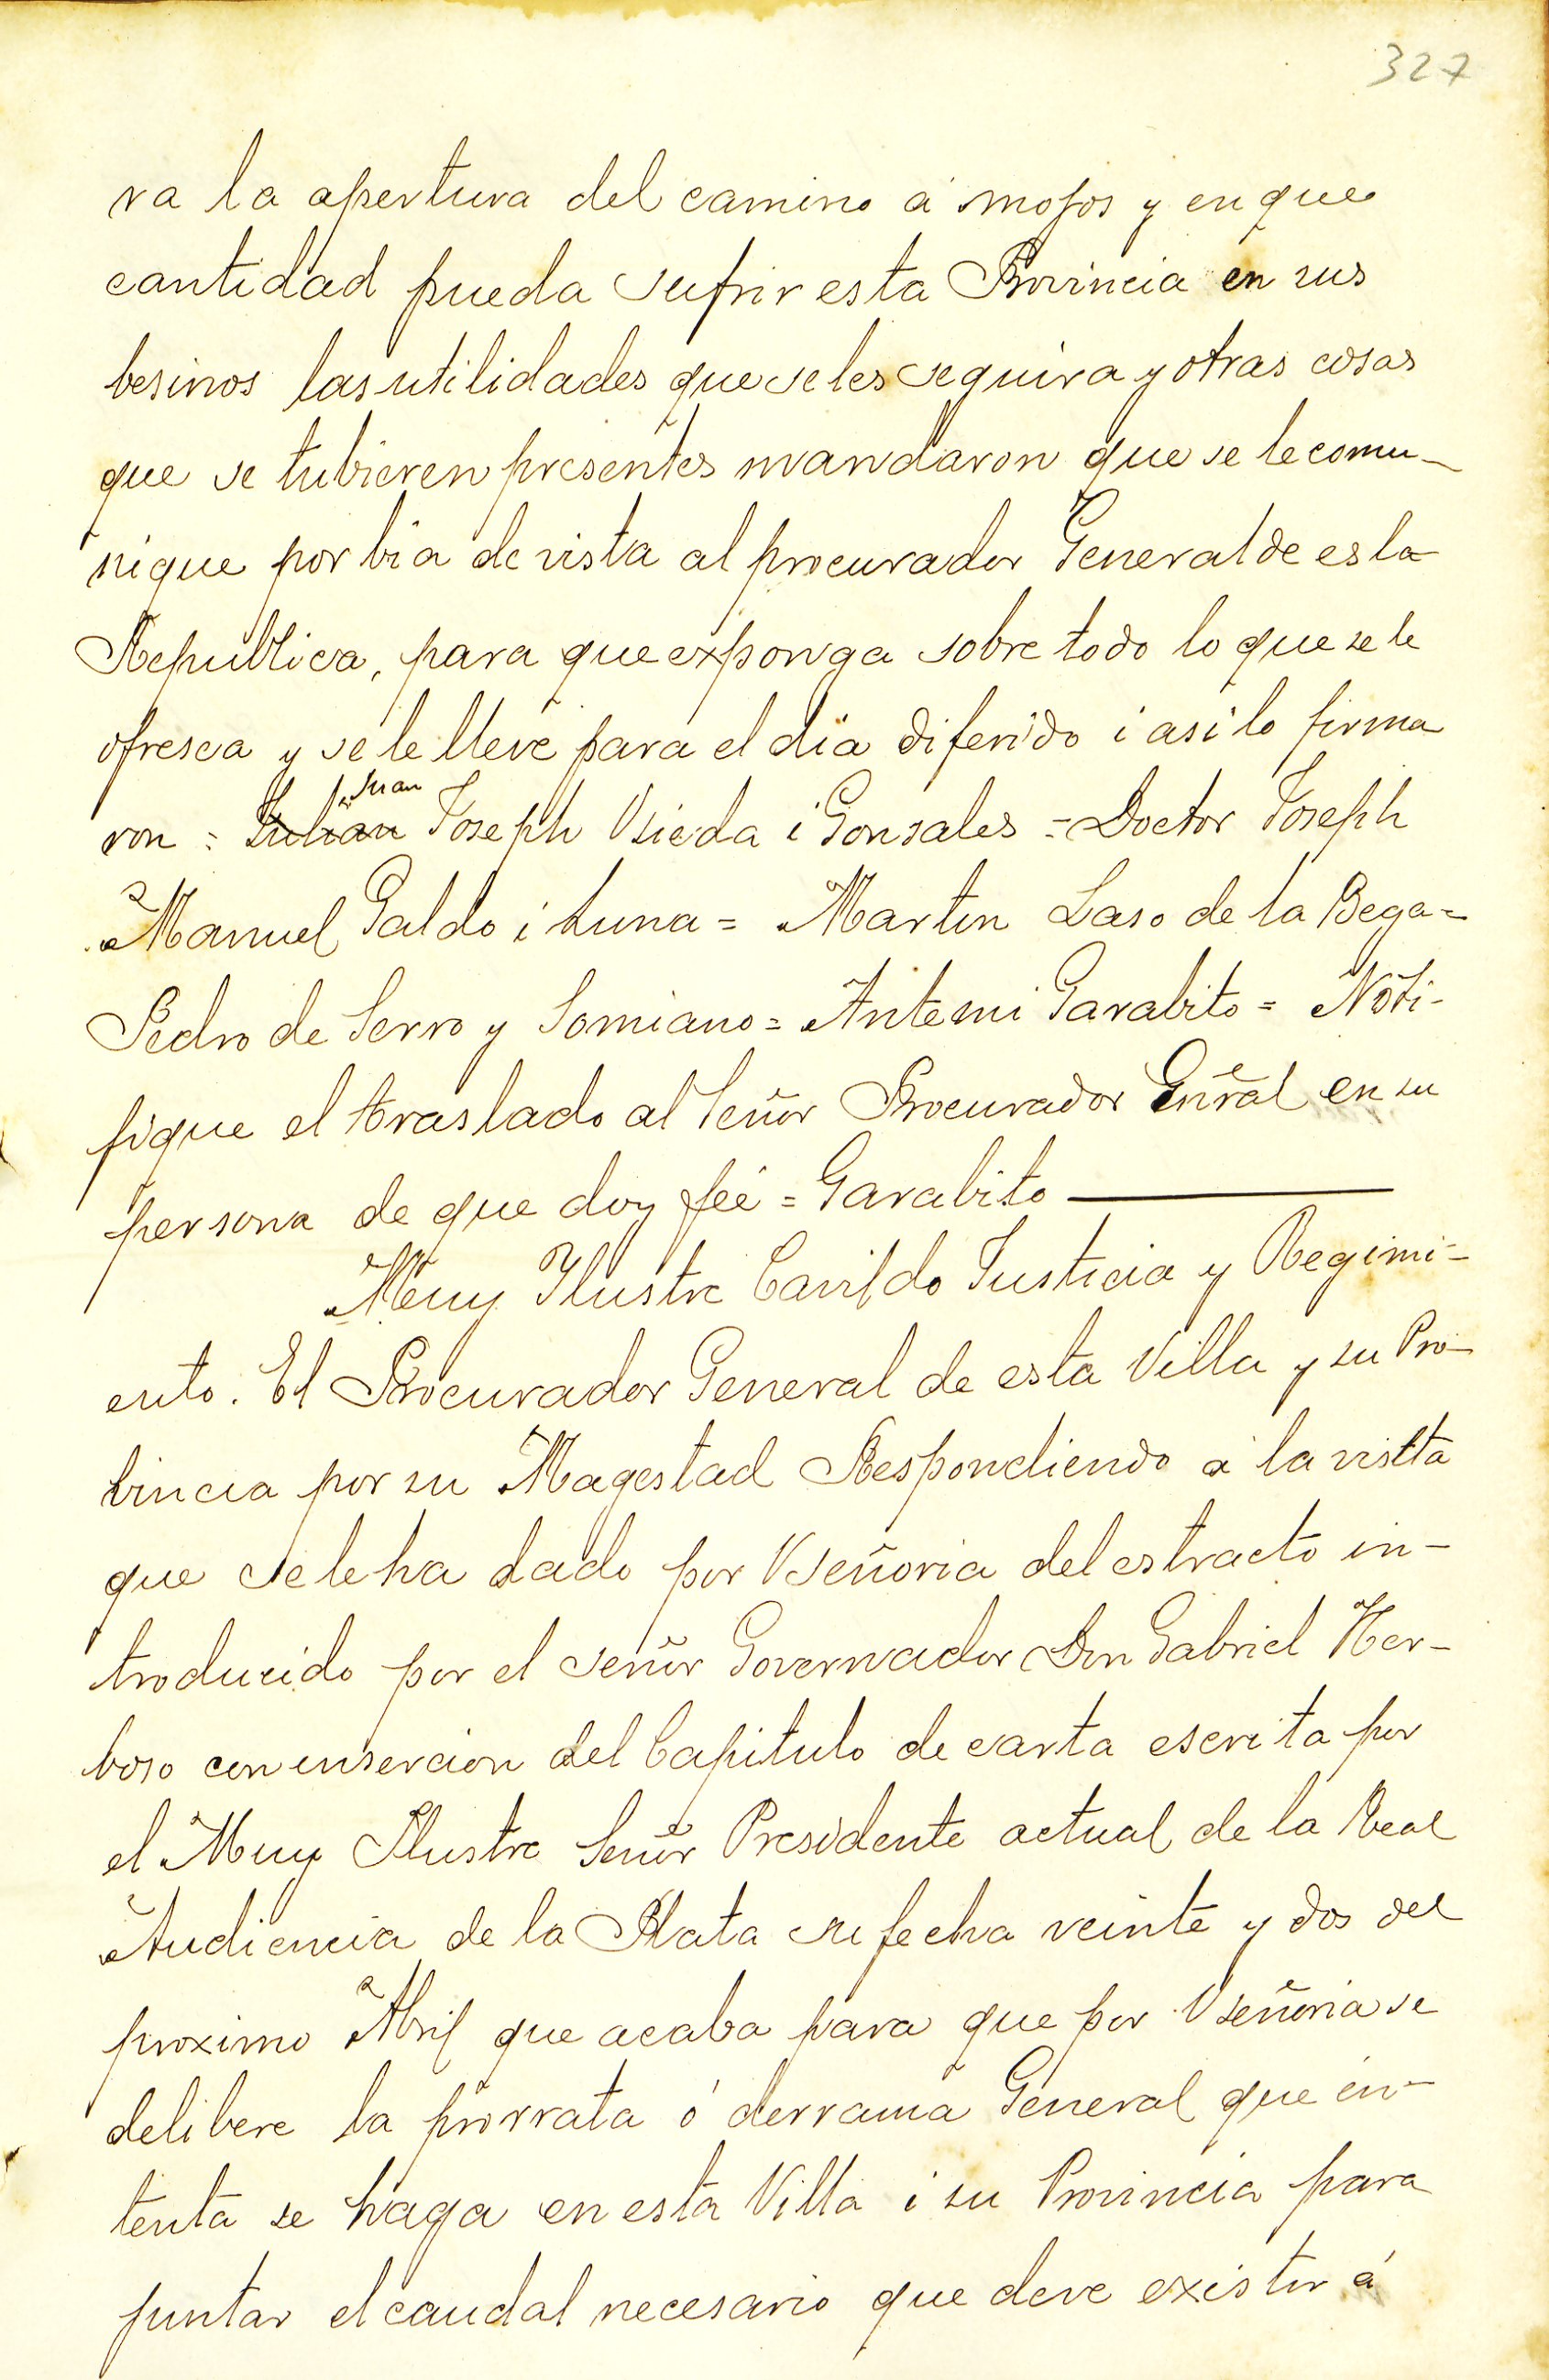 327
ra la apertura del camino á mojos y en que
cantidad pueda sufrir esta Provincia en sus
besinos las utilidades que se les seguira y otras cosas
que se tubieren presentes mandaron que se le comu-
nique por bia de vista al procurador General de esta
Republica, para que exponga sobre todo lo que se le
ofresca y se le lleve para el dia diferido i asi lo firma
ron = Julian Juan Joseph Vsieda i Gonsales = Doctor Joseph
Manuel Galdo i Luna = Martin Laso de la Bega =
Pedro de Serro y Somiano = Ante mi Garabito = Noti-
fique el traslado al Señor Procurador Gñral en su
persona de que doy feé = Garabito
Muy Ilustre Cavildo Justicia y Regimi-
ento. El Procurador General de esta Villa y su Pro-
bincia por su Magestad Respondiendo a la vistta
que se le ha dado por Vseñoria del estracto in-
troducido por el señor Governador Don Gabriel Her-
boso con insercion del Capitulo de carta escrita por
el Muy Ilustre Señor Presidente actual de la Real
Audiencia de la Plata su fecha veinte y dos del
proximo Abril que acaba para que por Vseñoria se
delibere la prorrata ó derrama General que in-
tenta se haga en esta Villa i su Provincia para
juntar el caudal necesario que deve existir á